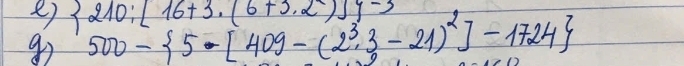 e) {210:[16+3.(6+3.2²)]}-3
g) 500-{5.[409-(2³.3-21)²]-1724}